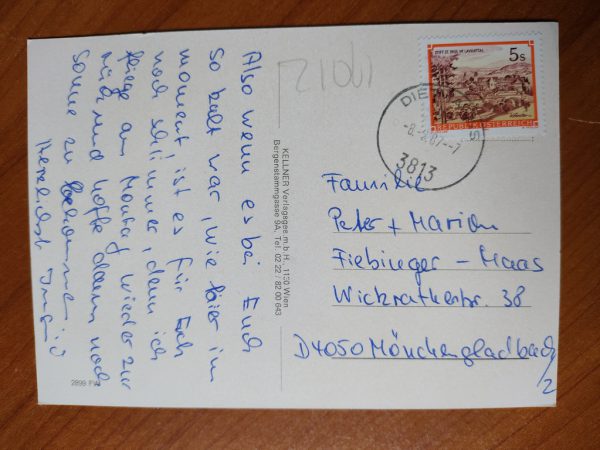 Also wenn es bei Euch
so kalt war, wie hier im
moment, ist es für Euch
noch schlimmer, denn ich
fliege am Montag wieder zu
und hoffe dann noch
Sonne zu bekommen
Herzlichst Ingrid
KELLNER Verlagsges m.b.H., 1130 Wien
Bergenstammgasse 9A, Tel. 02 22 / 82 00 683
2899 FW
STIFT ST. PAUL IM LAVANTTAL
5s
REPUBLIK ÖSTERREICH
3813
Familie
Peter + Marion
Fiebinger - Maas
Wickratherstr. 38
D4050 Mönchengladbach
/2